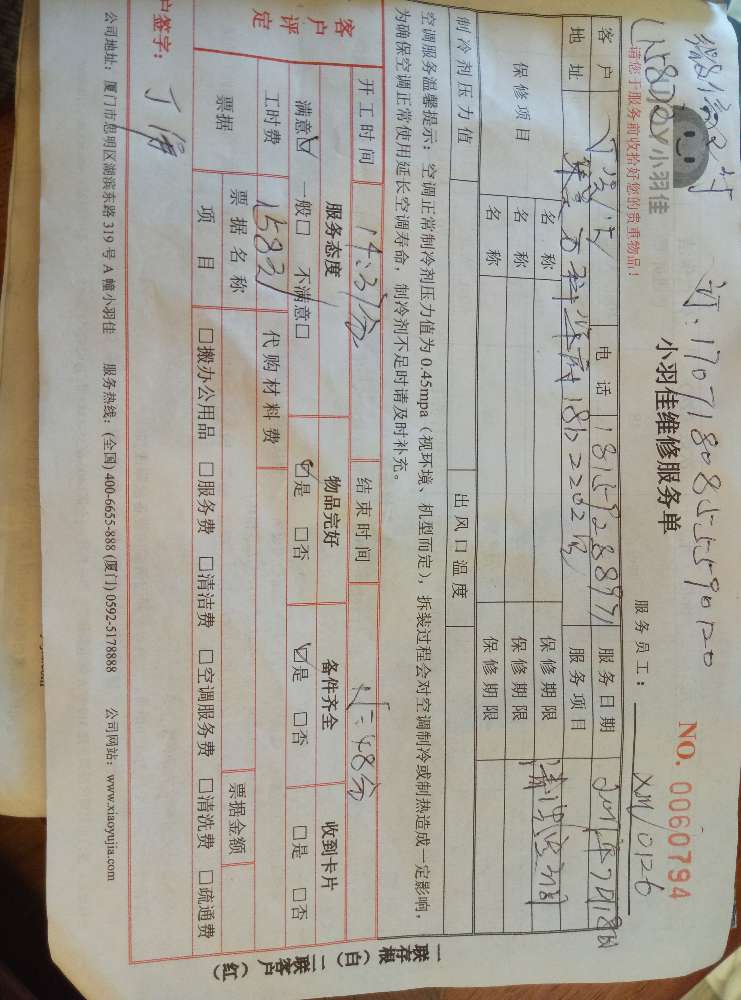 微信支付
订:1707180855590120
(158元)
XIAOYUJIA 小羽佳
小羽佳维修服务单
NO. 0060794
请您于服务前收拾好您的贵重物品!
服务员工: XM/0126
客户 丁 电话 18159288971 服务日期 2017年7月18日
地址 2202 服务项目
保修项目 名称 保修期限
名称 保修期限
名称 保修期限
制冷剂压力值 出风口温度
空调服务温馨提示:空调正常制冷剂压力值为 0.45mpa(视环境、机型而定),拆装过程会对空调制冷或制热造成一定影响,
为确保空调正常使用延长空调寿命,制冷剂不足时请及时补充。
开工时间 14:31分 结束时间 15:48分
客户评定 服务态度 物品完好 备件齐全 收到卡片
满意☑ 一般□ 不满意□ ☑是 □否 ☑是 □否 □是 □否
工时费 158元 代购材料费
票据 票据名称 票据金额
项目 □搬办公用品 □服务费 □清洁费 □空调服务费 □清洗费 □疏通费
户签字: 丁
公司地址:厦门市思明区湖滨东路 319 号 A 幢小羽佳 服务热线:(全国) 400-6655-888 (厦门) 0592-5178888 公司网站:www.xiaoyujia.com
一联存根(白)二联客户(红)